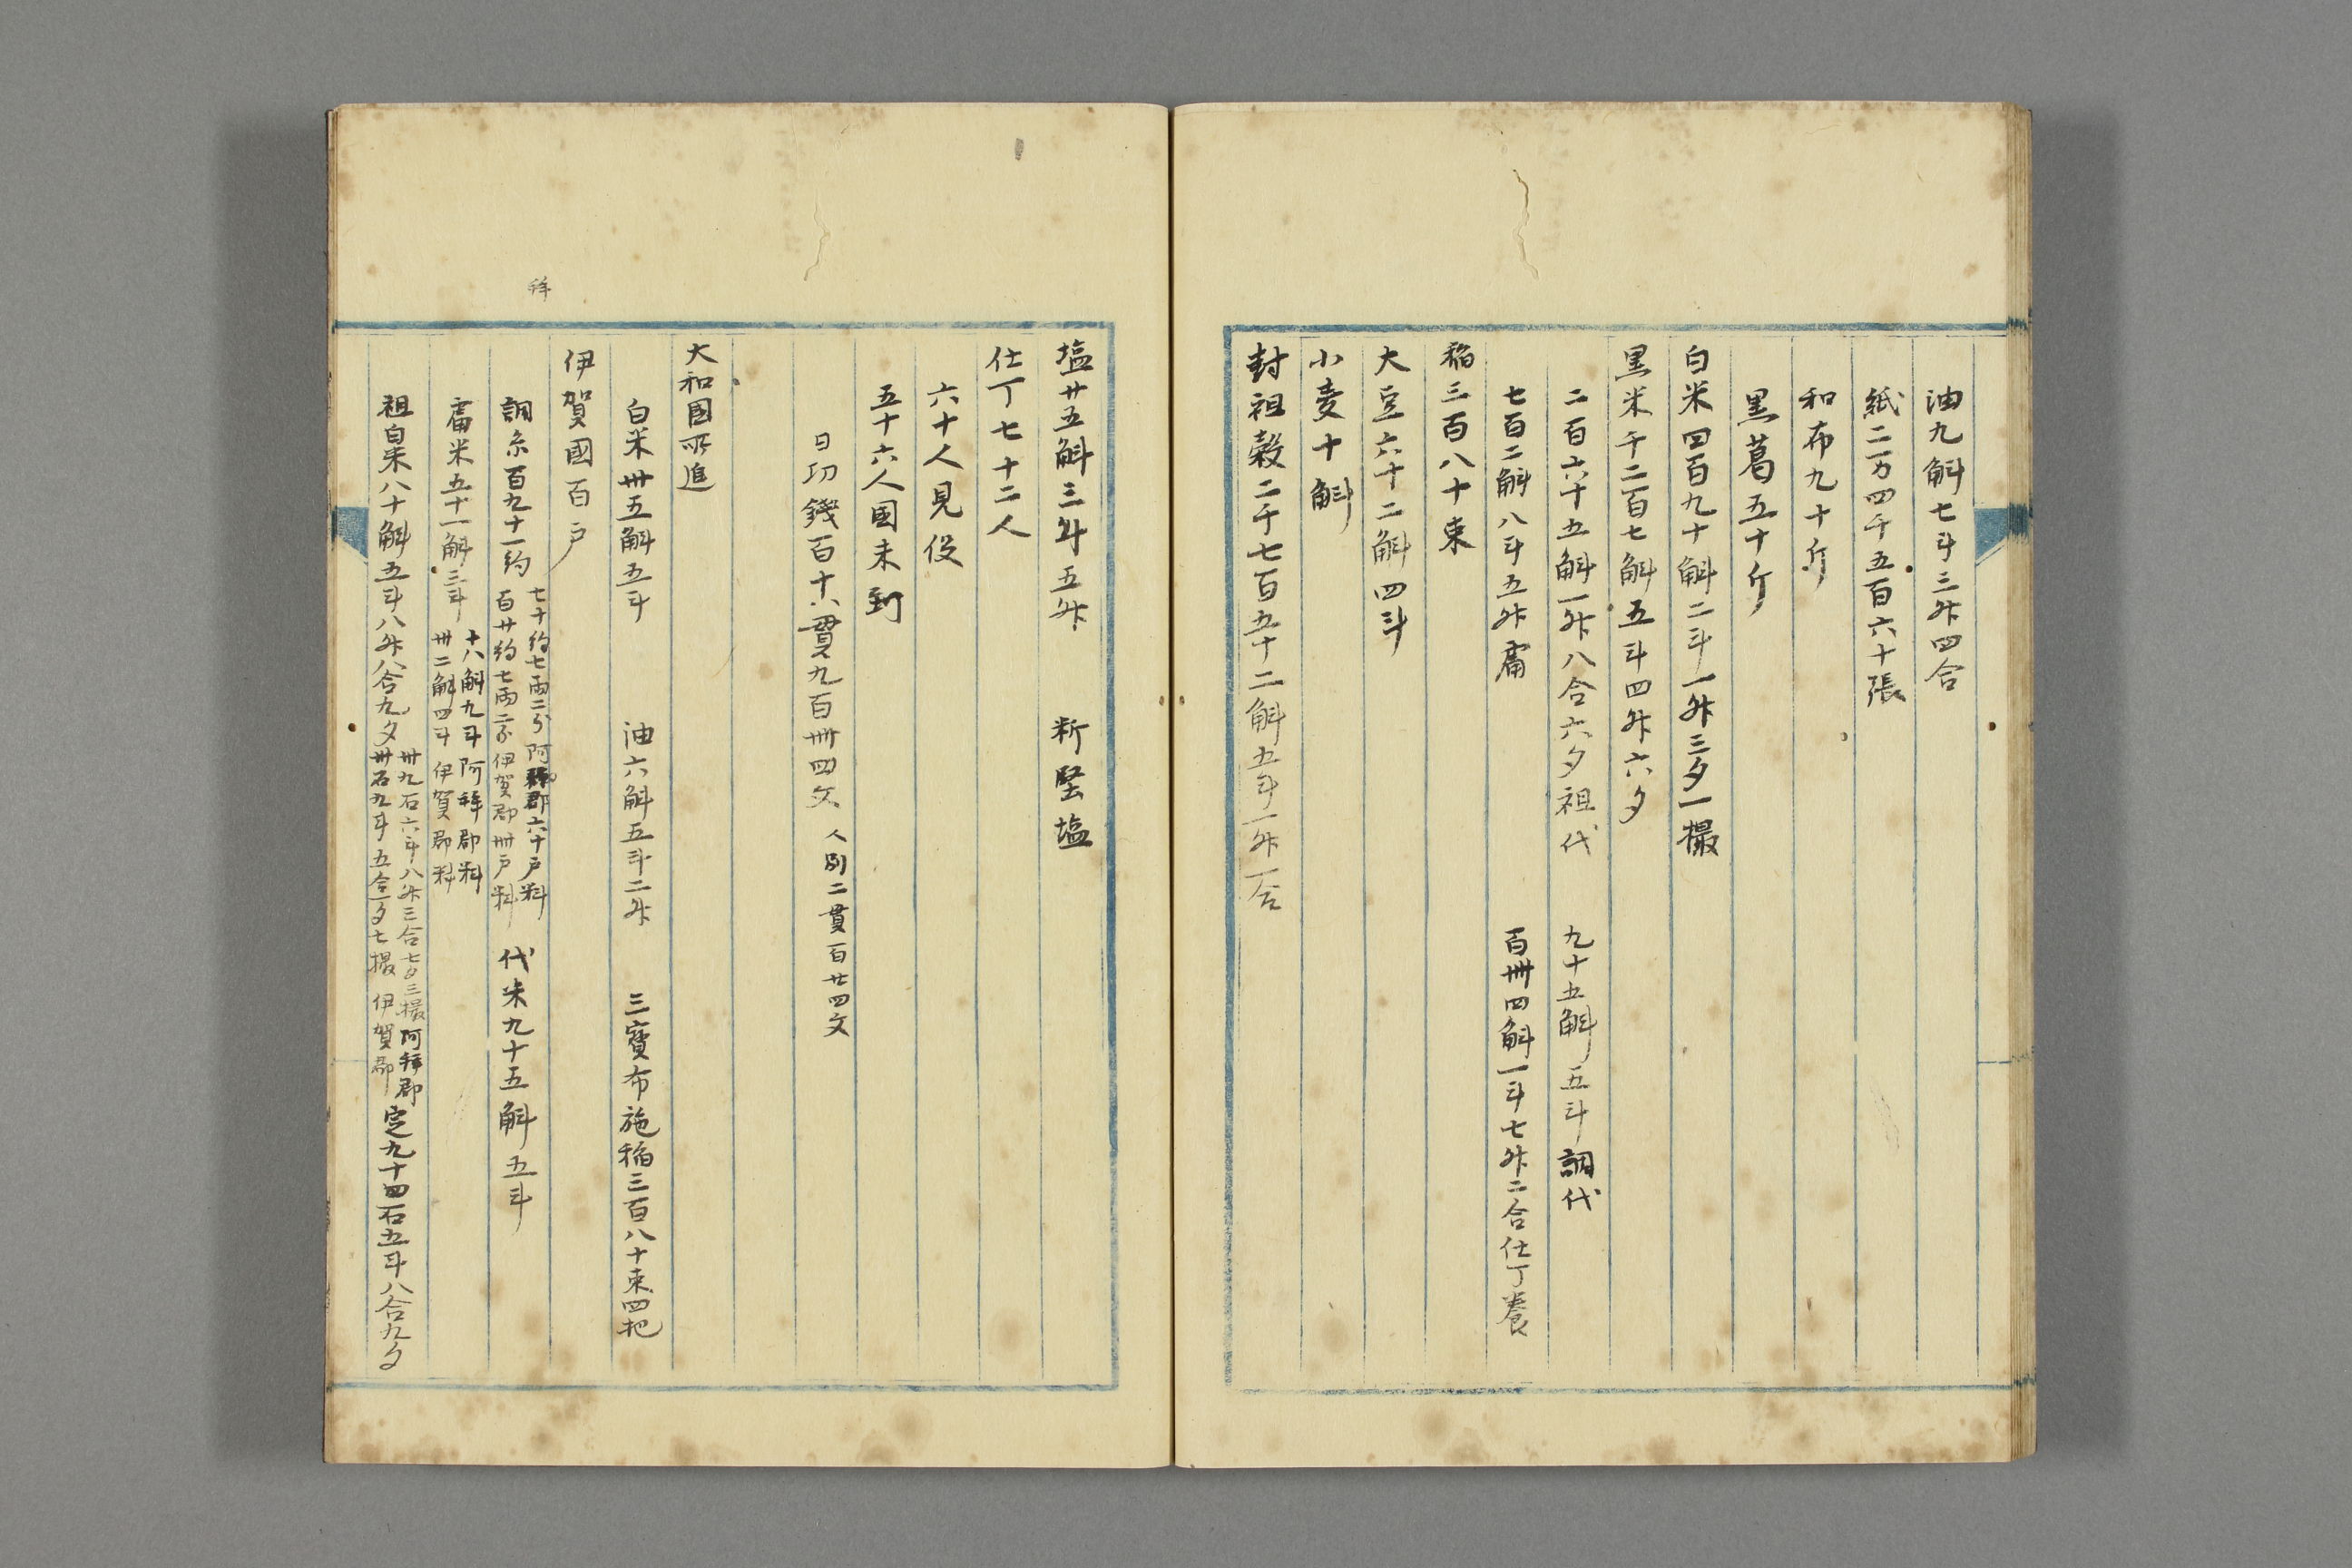 油九斛七斗三升四合
紙二万四千五百六十張
和布九十斤
黒葛五十斤
白米四百九十斛二斗一升三夕一撮
黒米千二百七斛五斗四升六夕
二百六十五斛一升八合六夕祖代　九十五斛五斗調代
七百二斛八斗五升庸　百卌四斛一斗七升二合仕丁養
稲三百八十束
大豆六十二斛四斗
小麦十斛
封祖穀二千七百五十二斛五斗一升一合
塩廿五斛三斗五升　断堅塩
仕丁七十二人
六十人見役
五十六人国未到
日功錢百十八貫九百卌四文　人別二貫百廿四文
大和国所進
白米卌五斛五斗　油六斛五斗二升　三寶布施稲三百八十束四把
伊賀國百戸
拝
調糸百九十一絇　七十絇七両二分　阿拝郡六十戸料
百廿絇七両二分　伊賀郡卌戸料　代米九十五斛五斗
庸米五十一斛三斗　十八斛九斗　阿拝郡料
卅二斛四斗　伊賀郡料
祖白米八十斛五斗八升八合九夕　卅九石六斗八升三合七夕三撮　阿拝郡
卌石九斗五合夕七撮　伊賀郡　定九十四石五斗八合九夕